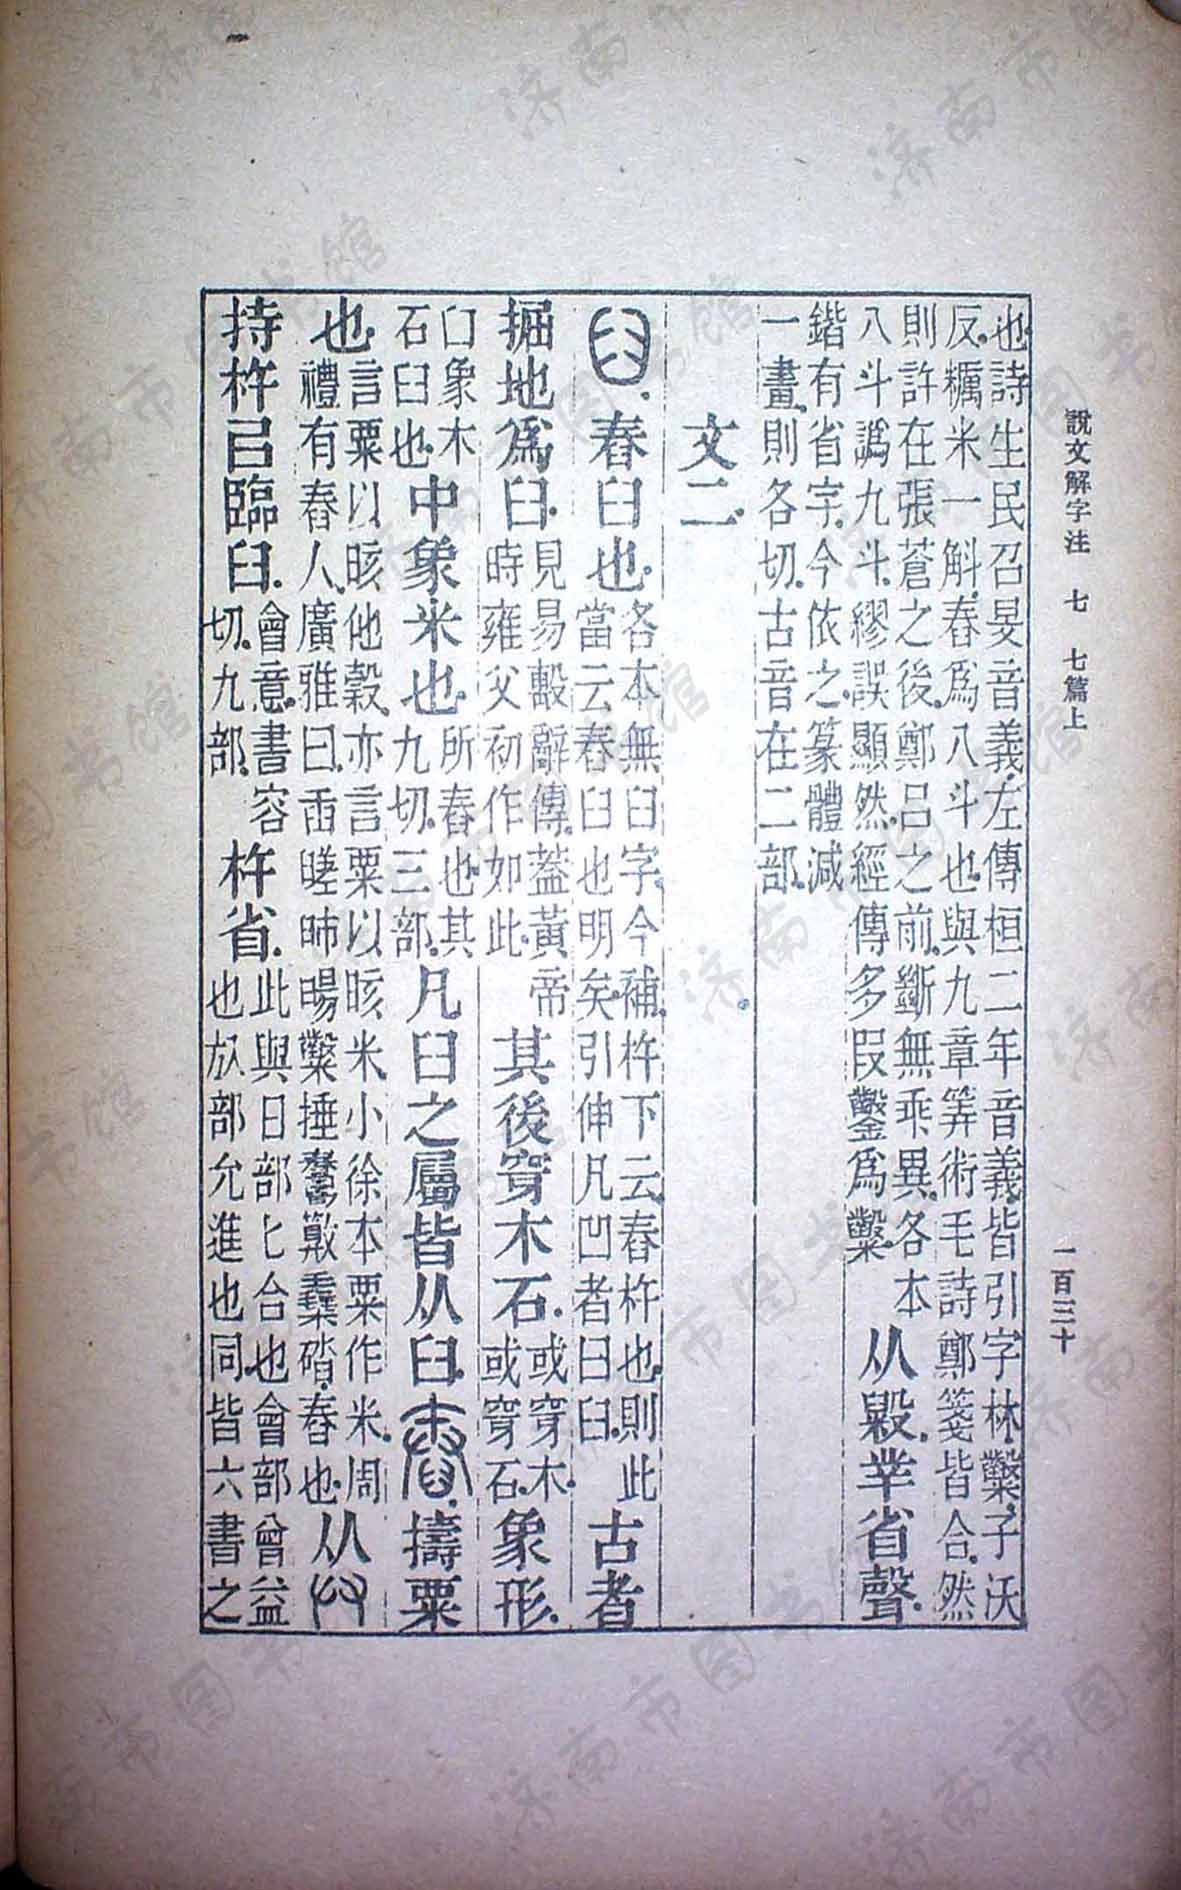 說文解字注 七 七篇上 一百三十
也詩生民召旻音義左傳桓二年音義皆引字林𥽦子沃
反糲米一斛舂爲八斗也與九章筭術毛詩鄭箋皆合然
則許在張蒼之後鄭呂之前斷無乖異各本
八斗譌九斗繆誤顯然經傳多叚鑿爲𥽦
从毇丵省聲
鍇有省字今依之篆體減
一畫則各切古音在二部
文二
臼舂臼也
各本無臼字今補杵下云舂杵也則此
當云舂臼也明矣引伸凡凹者曰臼
古者
掘地爲臼
見易毄辭傳葢黃帝
時雍父初作如此
其後穿木石
或穿木
或穿石
象形
口象木
石臼也
中象米也
所舂也其
九切三部
凡臼之屬皆从臼舂擣粟
也
言粟以晐他穀亦言粟以晐米小徐本粟作米周
禮有舂人廣雅曰 𥽦捶 舂也
从𠬞
持杵㠯臨臼
會意書容
切九部
杵省
此與日部𠤎合也會部曾益
也㚘部允進也同皆六書之